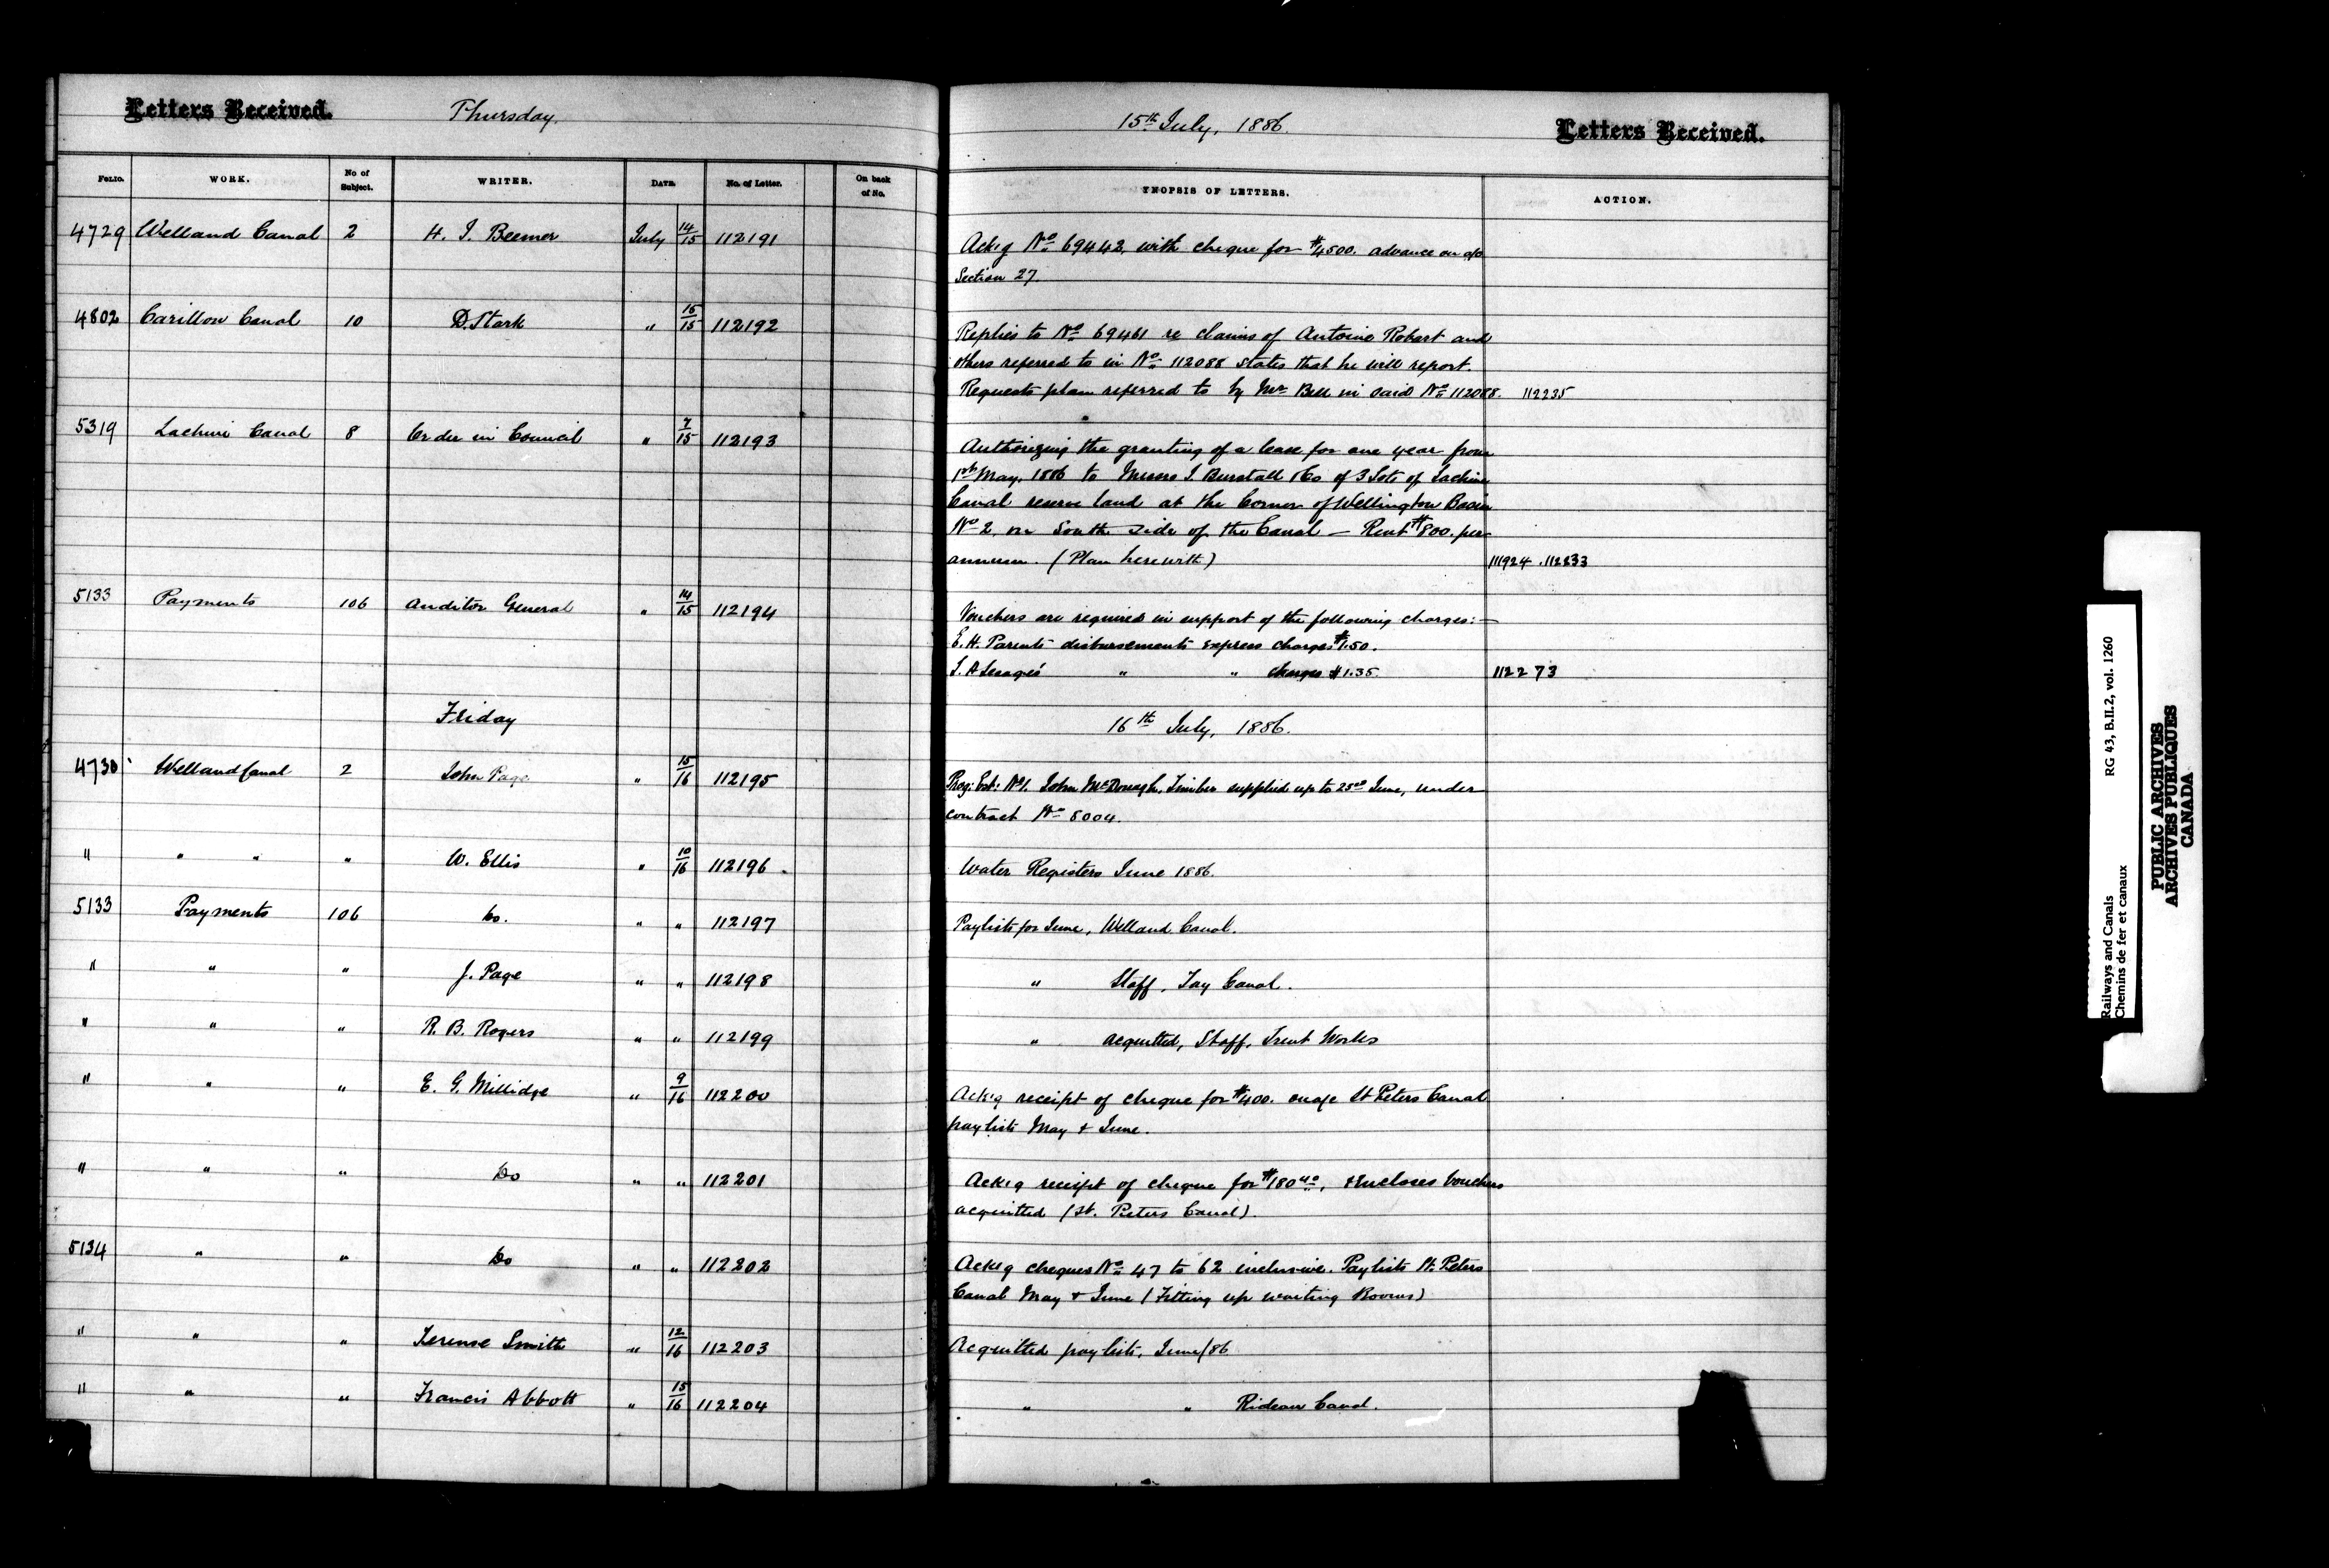 Letters Received. Thursday. 15th July, 1886. Letters Received.
FOLIO. WORK. No of Subject. WRITER. DATE. No. of Letter. On back of No. SYNOPSIS OF LETTERS. ACTION.
4729 Welland Canal 2 H. J. Beemer July 14/15 112191 Ackg No 69442, with cheque for $4500. advance on a/c
Section 27.
4802 Carillon Canal 10 D. Stark " 15/15 112192 Replies to No 69461 re claims of Antoine Robert and
others referred to in No 112088 states that he will report.
Requests plan referred to by Mr Bell in said No 112088. 112235
5319 Lachine Canal 8 Order in Council " 7/15 112193 Authorizing the granting of a lease for one year from
1st May, 1886 to Messrs J. Burstall & Co of 3 Lots of Lachine
Canal reserve land at the Corner of Wellington Basin
No 2 on South side of the Canal — Rent $800. per
annum. (Plan herewith) 111924 . 112233
5133 Payments 106 Auditor General " 14/15 112194 Vouchers are required in support of the following charges:—
E. H. Parents disbursements express charges $1.50.
J. A Lesages' " " charges $1.35. 112273
Friday 16th July, 1886.
4730 Welland Canal 2 John Page " 15/16 112195 Prog: Est: No 1. John McDonagh, Timber supplied up to 25th June, under
contract No 8004.
" " " " W. Ellis " 10/16 112196 Water Registers June 1886.
5133 Payments 106 Do. " " 112197 Paylists for June, Welland Canal.
" " " J. Page " " 112198 " Staff, Tay Canal.
" " " R. B. Rogers " " 112199 " acquitted, Staff, Trent Works
" " " E. G. Millidge " 9/16 112200 Ackg receipt of cheque for $400. on a/c St Peters Canal
paylists May & June.
" " " Do " " 112201 Ackg receipt of cheque for $180 40, & encloses vouchers
acquitted (St. Peters Canal).
5134 " " Do " " 112202 Ackg cheques No 47 to 62 inclusive. Paylists St. Peters
Canal May & June (Fitting up waiting Rooms)
" " " Terense Smith " 12/16 112203 Acquitted paylists, June/86
" " " Francis Abbott " 15/16 112204 " " Rideau Canal.
RG 43, B.II.2, vol. 1260
Railways and Canals
Chemins de fer et canaux
PUBLIC ARCHIVES
ARCHIVES PUBLIQUES
CANADA